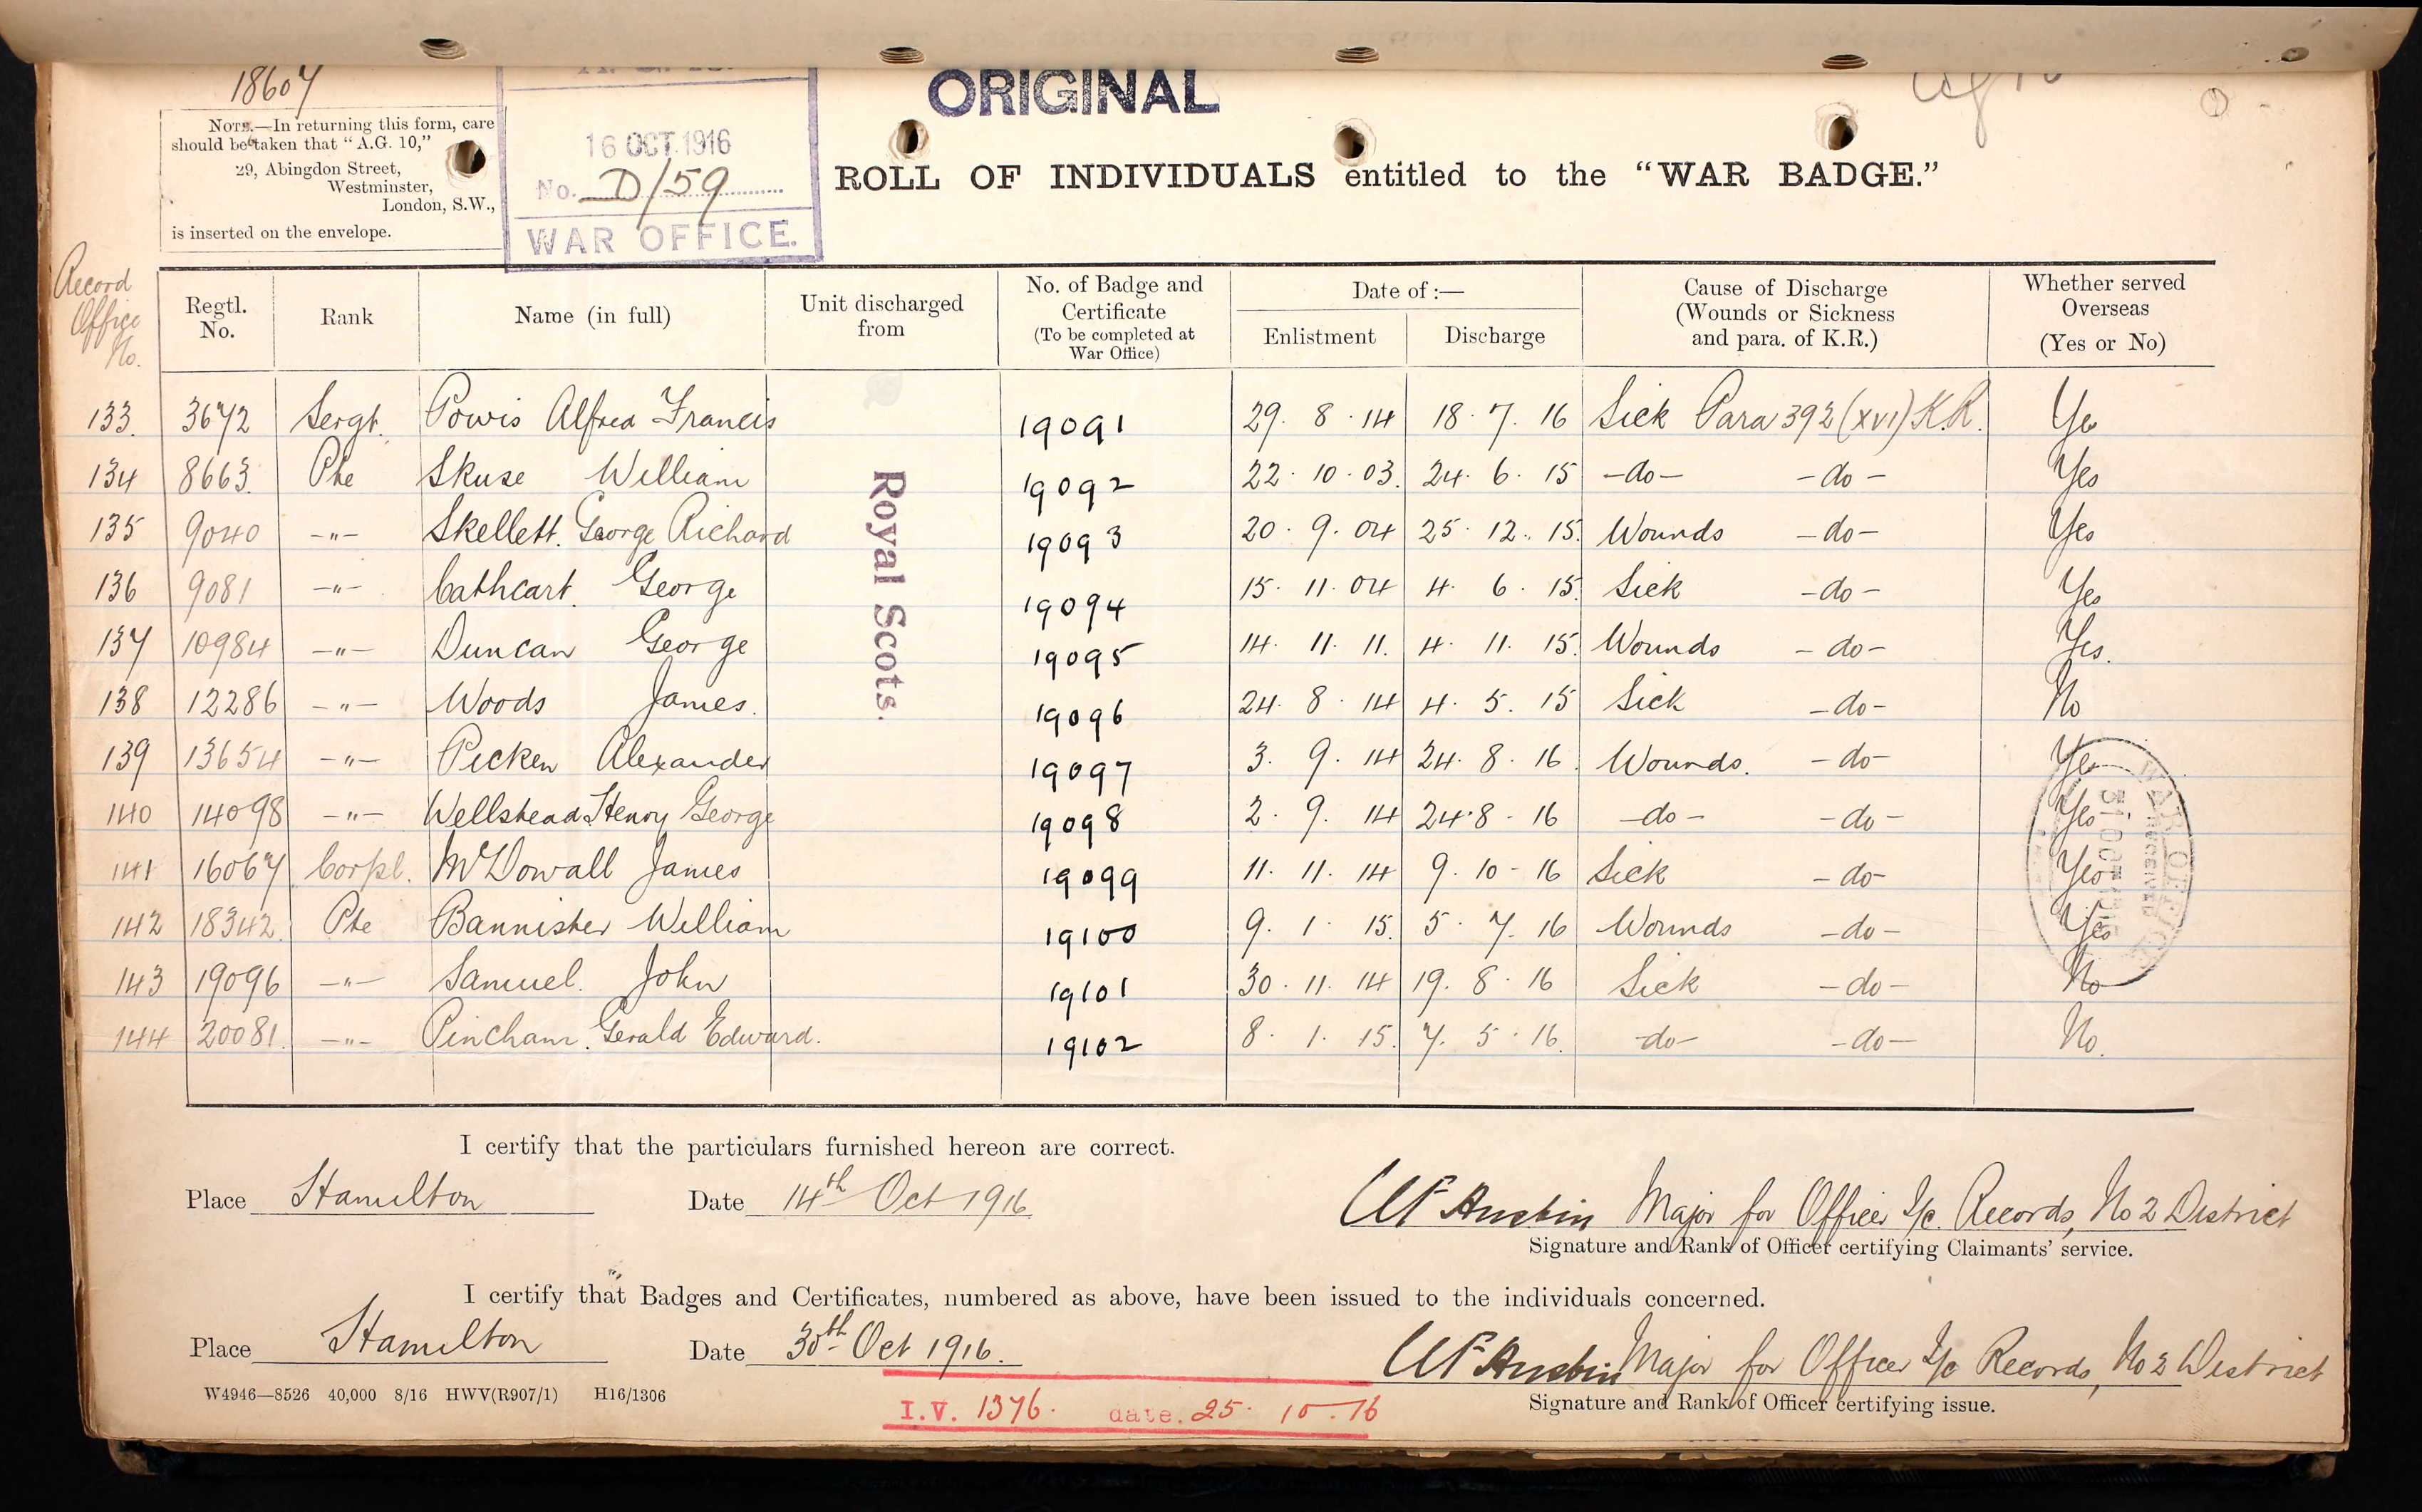 18607
A. G. 10.
ORIGINAL
NOTE.—In returning this form, care
should be taken that "A.G. 10,"
29, Abingdon Street,
Westminster,
London, S.W.,
is inserted on the envelope.
16 OCT. 1916
No. D/59
WAR OFFICE.
ROLL OF INDIVIDUALS entitled to the "WAR BADGE."
Record Office No. Regtl. No. Rank Name (in full) Unit discharged from No. of Badge and Certificate (To be completed at War Office) Date of :— Enlistment Discharge Cause of Discharge (Wounds or Sickness and para. of K.R.) Whether served Overseas (Yes or No)
133. 3672 Sergt. Powis Alfred Francis 19091 29. 8. 14 18. 7. 16 Sick Para 392 (XVI) K.R. Yes
134 8663. Pte Skuse William 19092 22. 10. 03. 24. 6. 15 -do- -do- Yes
135 9040 -"- Skellett. George Richard 19093 20. 9. 04 25. 12. 15. Wounds -do- Yes
136 9081 -"- Cathcart. George 19094 15. 11. 04 4. 6. 15. Sick -do- Yes
137 10984 -"- Duncan George 19095 14. 11. 11. 4. 11. 15. Wounds -do- Yes.
138 12286 -"- Woods James. 19096 24. 8. 14 4. 5. 15 Sick -do- No
139 13654 -"- Picken Alexander 19097 3. 9. 14 24. 8. 16. Wounds. -do- Yes
140 14098 -"- Wellstead Henry George 19098 2. 9. 14 24. 8. 16 -do- -do- Yes
141 16067 Corpl. McDowall James 19099 11. 11. 14 9. 10. 16 Sick -do- Yes
142 18342. Pte Bannister William 19100 9. 1. 15. 5. 7. 16 Wounds -do- Yes
143 19096 -"- Samuel. John 19101 30. 11. 14 19. 8. 16 Sick -do- No
144 20081. -"- Pincham. Gerald Edward. 19102 8. 1. 15. 7. 5. 16. -do- -do- No.
Royal Scots.
WAR OFFICE
RECEIVED
I certify that the particulars furnished hereon are correct.
Place Hamilton Date 14th Oct 1916 Austin Major for Officer I/c. Records, No 2 District
Signature and Rank of Officer certifying Claimants' service.
I certify that Badges and Certificates, numbered as above, have been issued to the individuals concerned.
Place Hamilton Date 30th Oct 1916. Austin Major for Officer I/c Records, No 2 District
Signature and Rank of Officer certifying issue.
W4946—8526 40,000 8/16 HWV(R907/1) H16/1306
I.V. 1376. date. 25. 10. 16